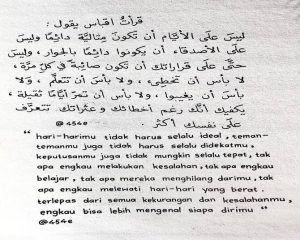 قرأتُ اقباس يقول :
ليسَ علَى الأيَّامِ أن تكونَ مِثاليَّة دائمًا وليسَ
علَى الأصدقاء أن يكونوا دائِمًا بالجوار، وليسَ
حتَّى علَى قراراتك أن تكون صائِبة في كلّ مرَّة،
لا بأسَ أن تخطِئ، ولا بأسَ أن تتعلَّم، ولَا
بأسَ أن يغيبوا، ولا بأسَ أن تمرّ أيَّامًا ثقيلة،
يكفيكَ أنَّك رغمَ أخطائكَ وعثراتك تتعرَّف
علَى نفسكَ أكثَر.
@454e
"hari-harimu tidak harus selalu ideal, teman-
temanmu juga tidak harus selalu didekatmu,
keputusanmu juga tidak mungkin selalu tepat, tak
apa engkau melakukan kesalahan, tak apa engkau
belajar, tak apa mereka menghilang darimu, tak
apa engkau melewati hari-hari yang berat.
terlepas dari semua kekurangan dan kesalahanmu,
engkau bisa lebih mengenal siapa dirimu"
@454e